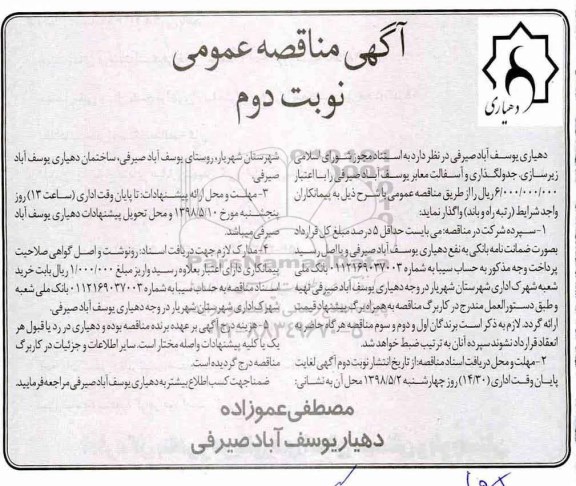 آگهی مناقصه عمومی
نوبت دوم
دهیاری
دهیاری یوسف آباد صیرفی در نظر دارد به استناد مجوز شورای اسلامی
زیرسازی، جدولگذاری و آسفالت معابر یوسف آباد صیرفی را با اعتبار
۶/۰۰۰/۰۰۰/۰۰۰ ریال را از طریق مناقصه عمومی با شرح ذیل به پیمانکاران
واجد شرایط (رتبه راه و باند) واگذار نماید:
۱- سپرده شرکت در مناقصه: می بایست حداقل ۵ درصد مبلغ کل قرارداد
بصورت ضمانت نامه بانکی به نفع دهیاری یوسف آباد صیرفی و یا اصل رسید
پرداخت وجه مذکور به حساب سیبا به شماره ۰۱۱۲۱۶۹۰۳۷۰۰۳ بانک ملی
شعبه شهرک اداری شهرستان شهریار در وجه دهیاری یوسف آباد صیرفی تهیه
و طبق دستورالعمل مندرج در کاربرگ مناقصه به همراه برگ پیشنهاد قیمت
ارائه گردد. لازم به ذکر است برندگان اول و دوم و سوم مناقصه هرگاه حاضر به
انعقاد قرارداد نشوند سپرده آنان به ترتیب ضبط خواهد شد.
۲- مهلت و محل دریافت اسناد مناقصه: از تاریخ انتشار نوبت دوم آگهی لغایت
پایان وقت اداری (۱۴/۳۰) روز چهارشنبه ۱۳۹۸/۵/۲ محل آن به نشانی:
شهرستان شهریار، روستای یوسف آباد صیرفی، ساختمان دهیاری یوسف آباد
صیرفی.
۳- مهلت و محل ارائه پیشنهادات: تا پایان وقت اداری (ساعت ۱۳) روز
پنجشنبه مورخ ۱۳۹۸/۵/۱۰ و محل تحویل پیشنهادات دهیاری یوسف آباد
صیرفی میباشد.
۴- مدارک لازم جهت دریافت اسناد: رونوشت و اصل گواهی صلاحیت
پیمانکاری دارای اعتبار بعلاوه رسید واریز مبلغ ۱/۰۰۰/۰۰۰ ریال بابت خرید
اسناد مناقصه به حساب سیبا به شماره ۰۱۱۲۱۶۹۰۳۷۰۰۳ بانک ملی شعبه
شهرک اداری شهرستان شهریار در وجه دهیاری یوسف آباد صیرفی.
۵- هزینه درج آگهی بر عهده برنده مناقصه بوده و دهیاری در رد یا قبول هر
یک یا کلیه پیشنهادات واصله مختار است. سایر اطلاعات و جزئیات در کاربرگ
مناقصه درج گردیده است.
ضمنا جهت کسب اطلاع بیشتر به دهیاری یوسف آباد صیرفی مراجعه فرمایید.
مصطفی عموزاده
دهیار یوسف آباد صیرفی